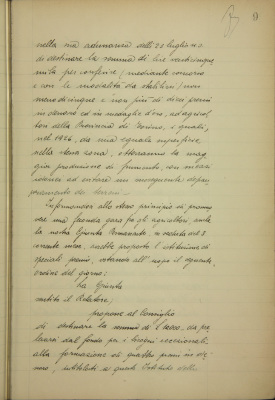 9
nella sua adunanza delli 20 luglio u.s.
di destinare la somma di lire venticinque
mila per conferire (mediante concorso
e con le modalità da stabilire) non
meno di cinque e non più di dieci premi
in denaro ed in medaglie d'oro, ad agricol
tori della Provincia di Torino, i quali,
nel 1926, da una eguale superficie,
nella stessa zona, otterranno la mag
gior produzione di frumento, con
ed evitare un conseguente
dei terreni.
Informandosi allo stesso principio di promuo
vere una feconda gara fra gli agricoltori, anche
la nostra Giunta Permanente, in seduta del 8
corrente mese, sarebbe proposto l'istituzione di
speciali premi, votando all'uopo il seguente
ordine del giorno:
La Giunta
sentito il Relatore;
propone al Consiglio
di destinare la somma di L. da pre
levarsi dal fondo per i bisogni eccezionali
alla formazione di quattro premi in de
naro, intitolati a questo Istituto della